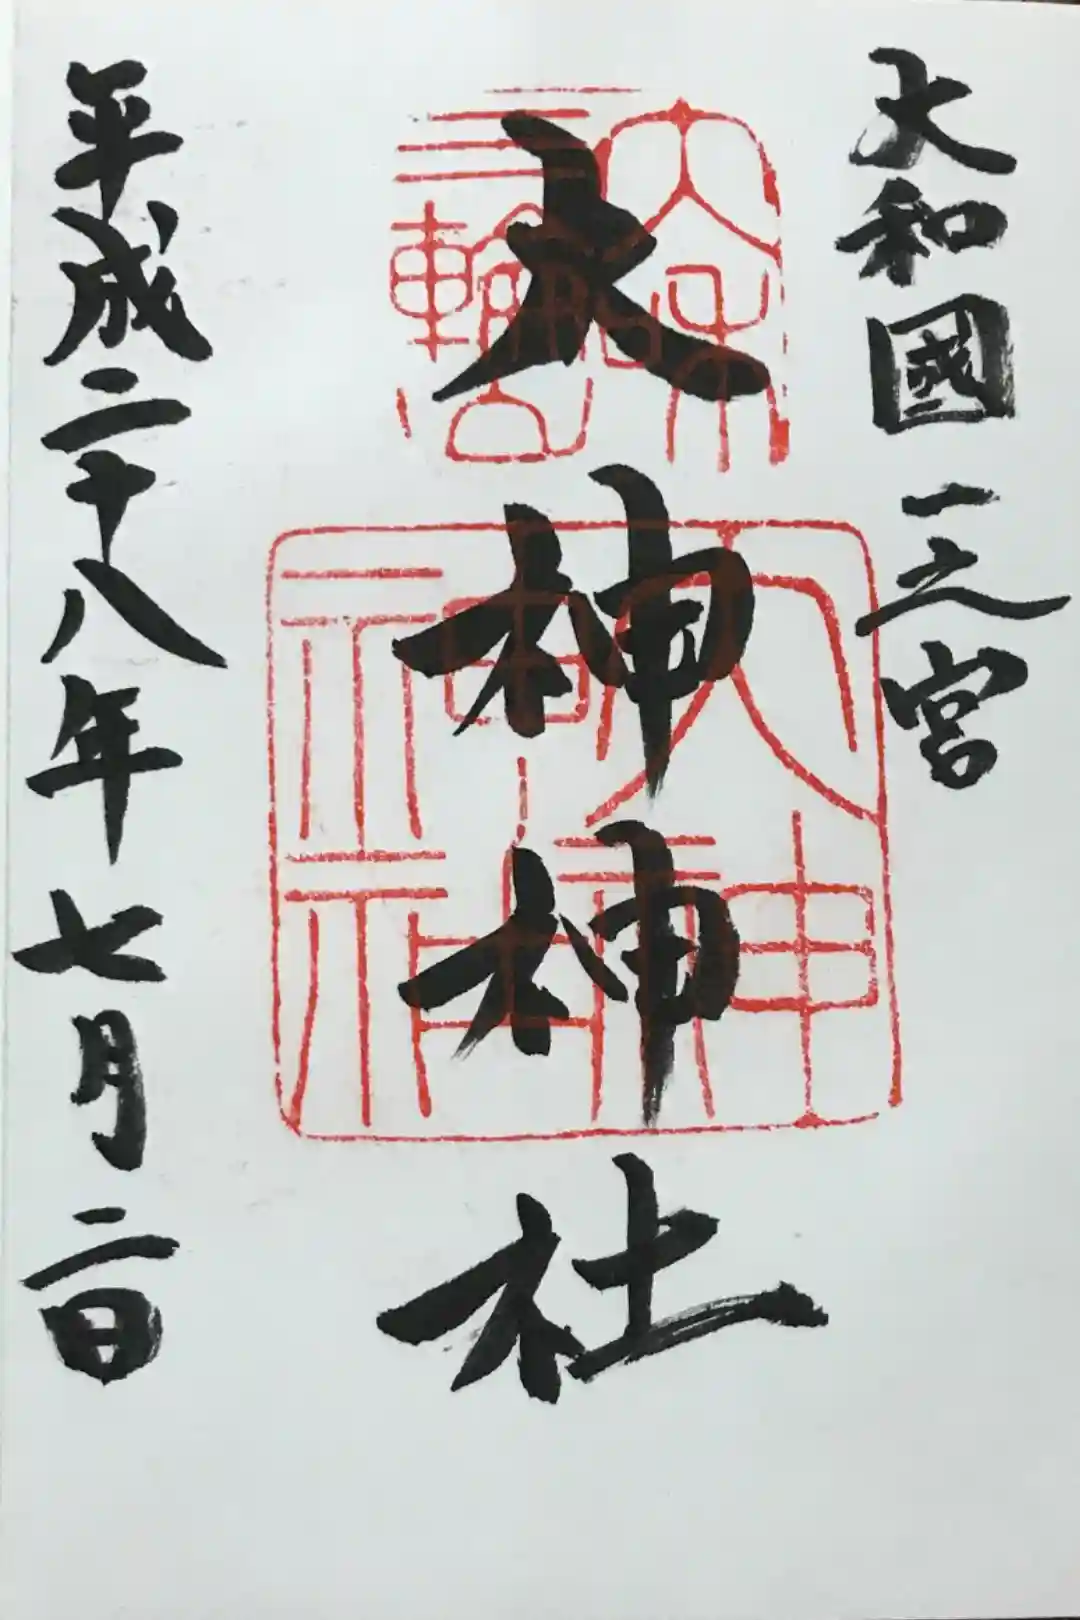 大和國一之宮
大神神社
大神
神社
平成二十八年七月二日